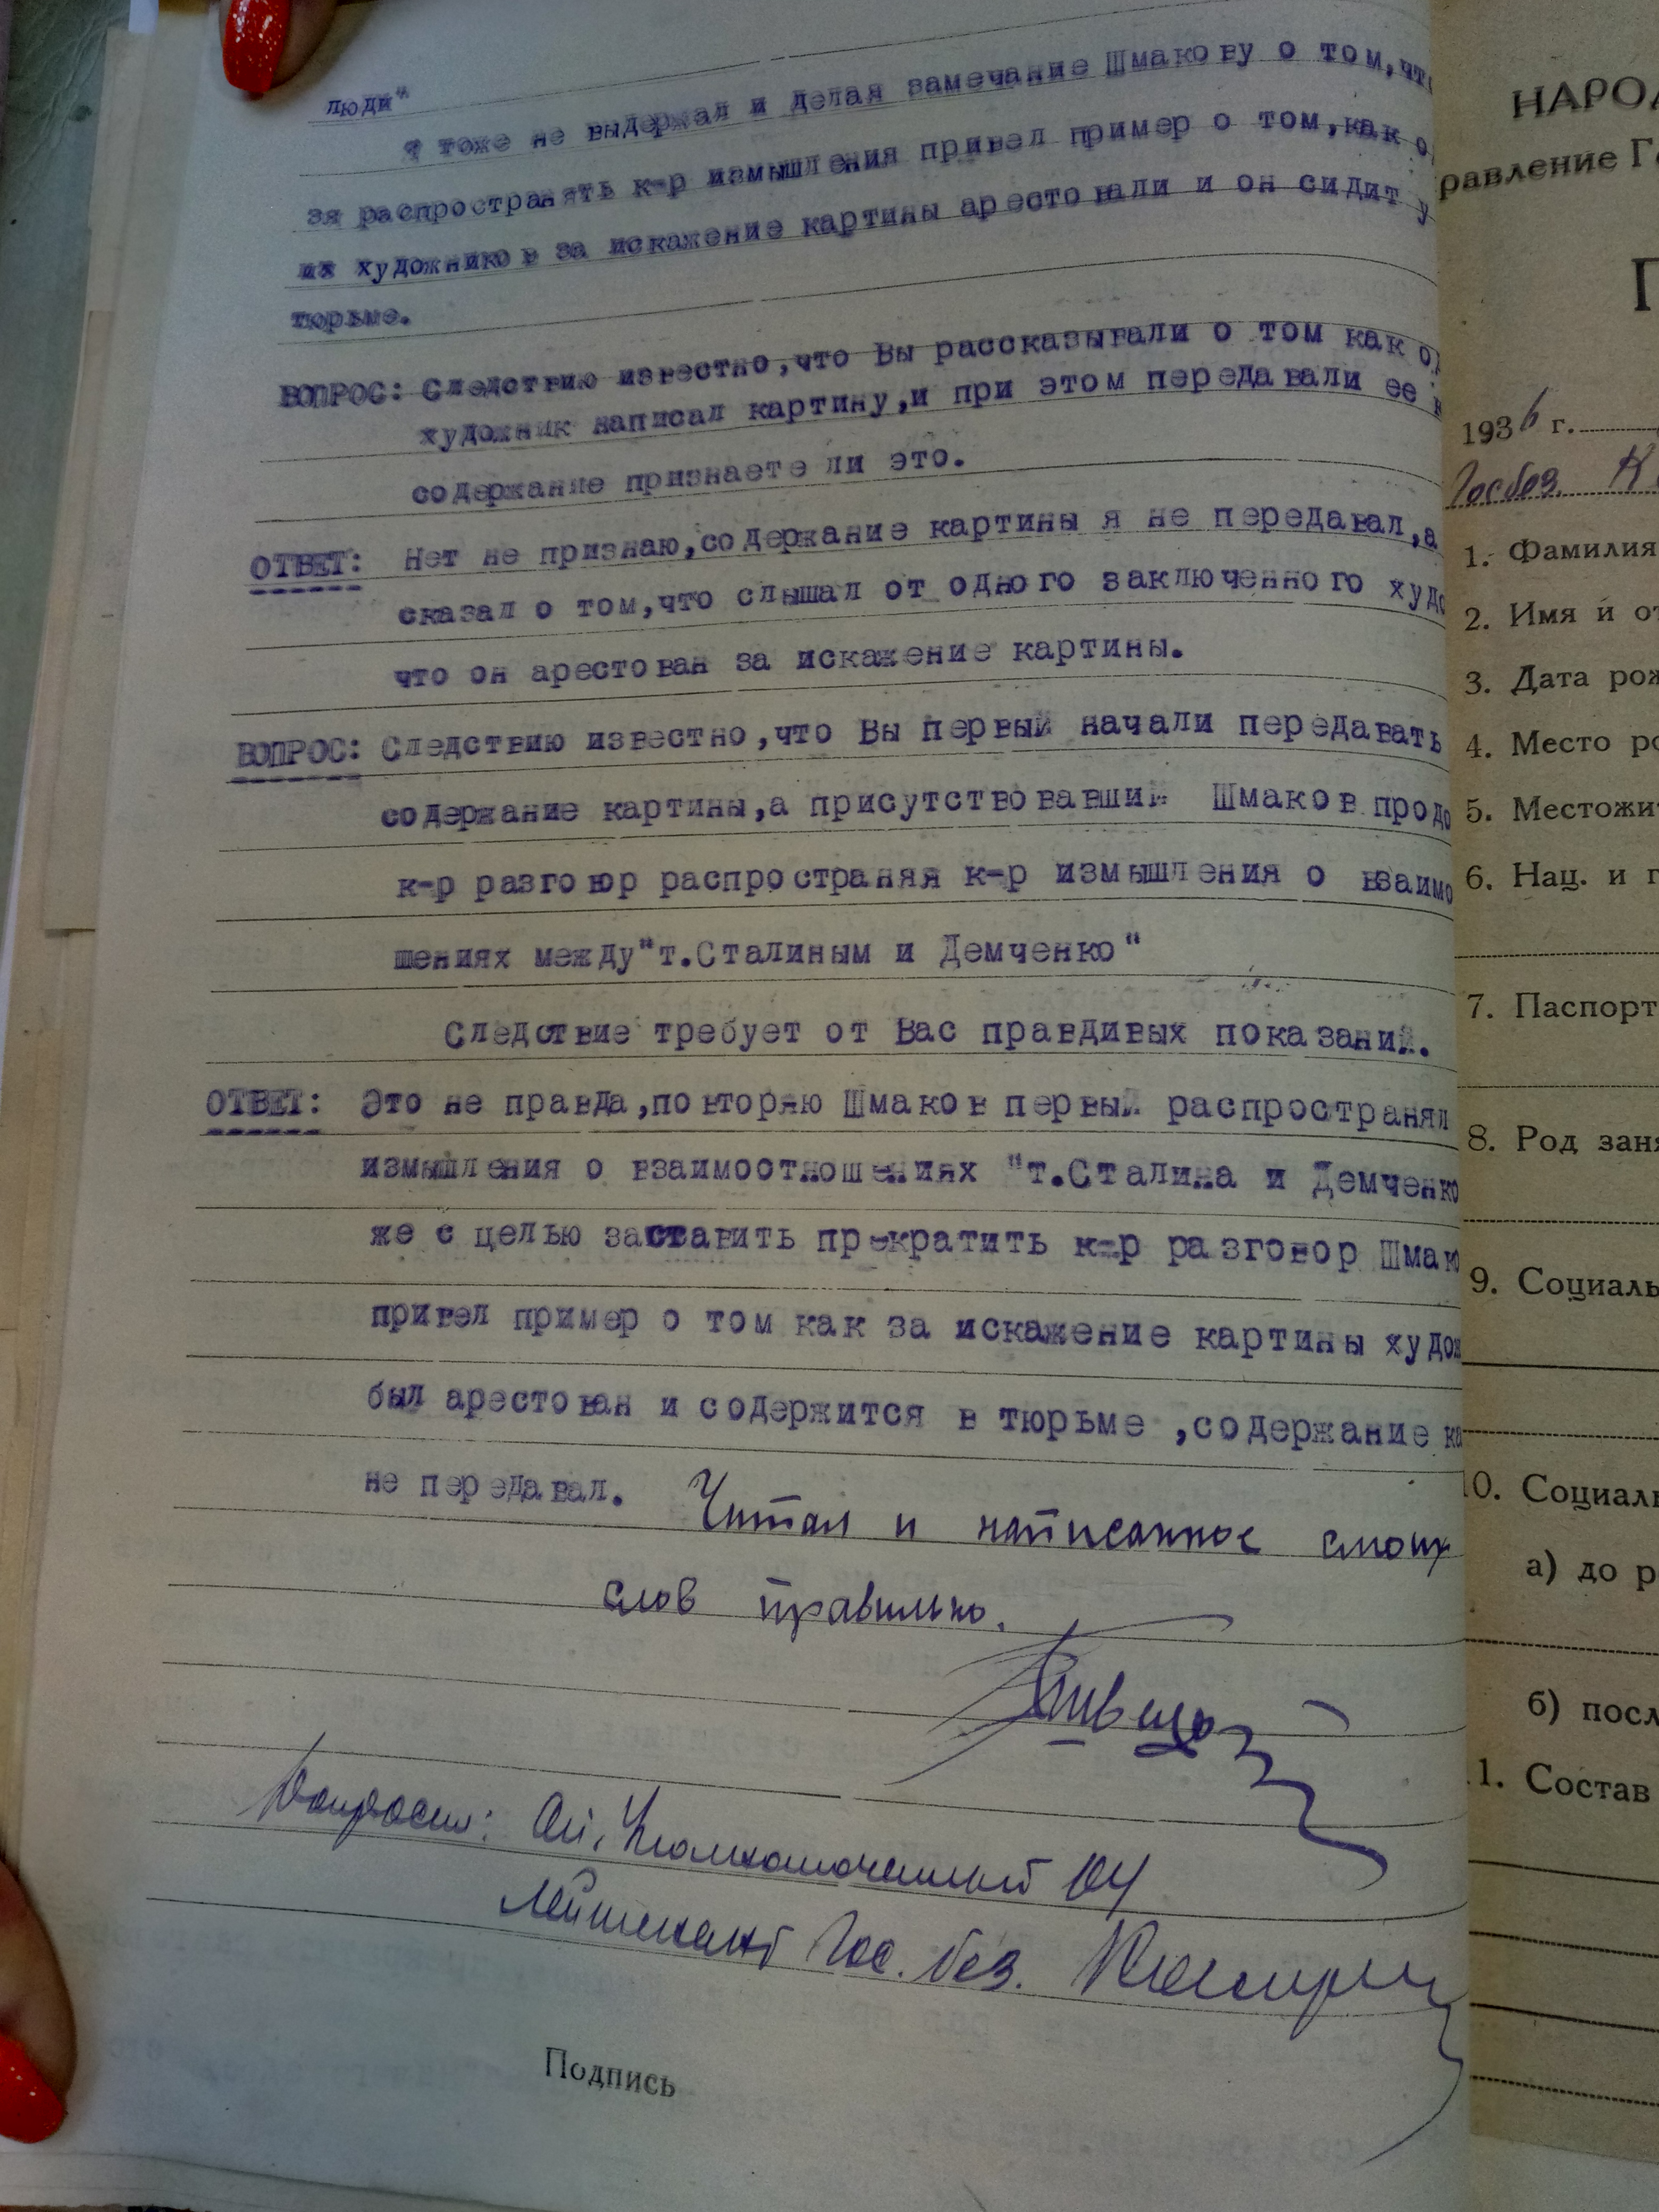 люди"
Я тоже не выдержал и делая замечание Шмакову о том,что
зя распространять к-р измышления привел пример о том,как о
их художников за искажение картины арестовали и он сидит у
тюрьме.
ВОПРОС: Следствию известно,что Вы рассказывали о том как од
художник написал картину,и при этом передавали ее
содержание признаете ли это.
ОТВЕТ: Нет не признаю,содержание картины я не передавал,а
сказал о том,что слышал от одного заключенного худо
что он арестован за искажение картины.
ВОПРОС: Следствию известно,что Вы первый начали передавать
содержание картины,а присутствовавший Шмаков продо
к-р разговор распространяя к-р измышления о взаимо
шениях между"т.Сталиным и Демченко"
Следствие требует от Вас правдивых показаний.
ОТВЕТ: Это не правда,повторяю Шмаков первый распространял
измышления о взаимоотношениях "т.Сталина и Демченко
же с целью заставить прекратить к-р разговор Шмако
привел пример о том как за искажение картины худож
был арестован и содержится в тюрьме ,содержание ка
не передавал. Читал и написанное смоих
слов правильно.
Допросил: Оп. Уполномоченный ОЧ
Лейтенант Гос. без.
Подпись
НАРОД
равление Го
П
1936 г.
Госбез. К
1. Фамилия
2. Имя и от
3. Дата рож
4. Место ро
5. Местожит
6. Нац. и г
7. Паспорт
8. Род заня
9. Социаль
10. Социаль
а) до р
б) посл
11. Состав